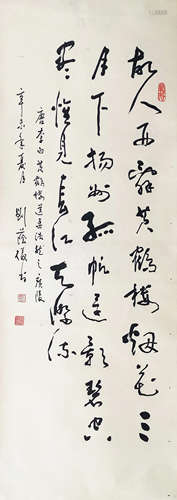 故人西辭黃鶴樓煙花三
月下揚州孤帆遠影碧空
盡惟見長江天際流
唐李白黃鶴樓送孟浩然之廣陵
辛未年夏月 劉蔭儀书